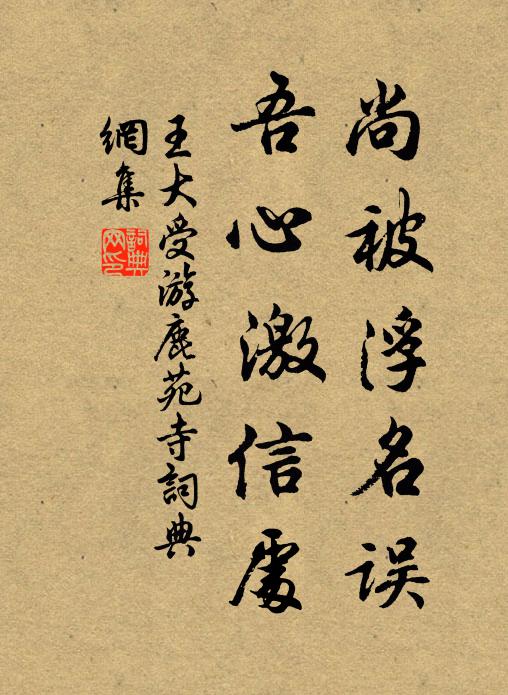 尚被浮名误
吾心激信處
王大受游鹿苑寺詞典
網集
詞典
网印